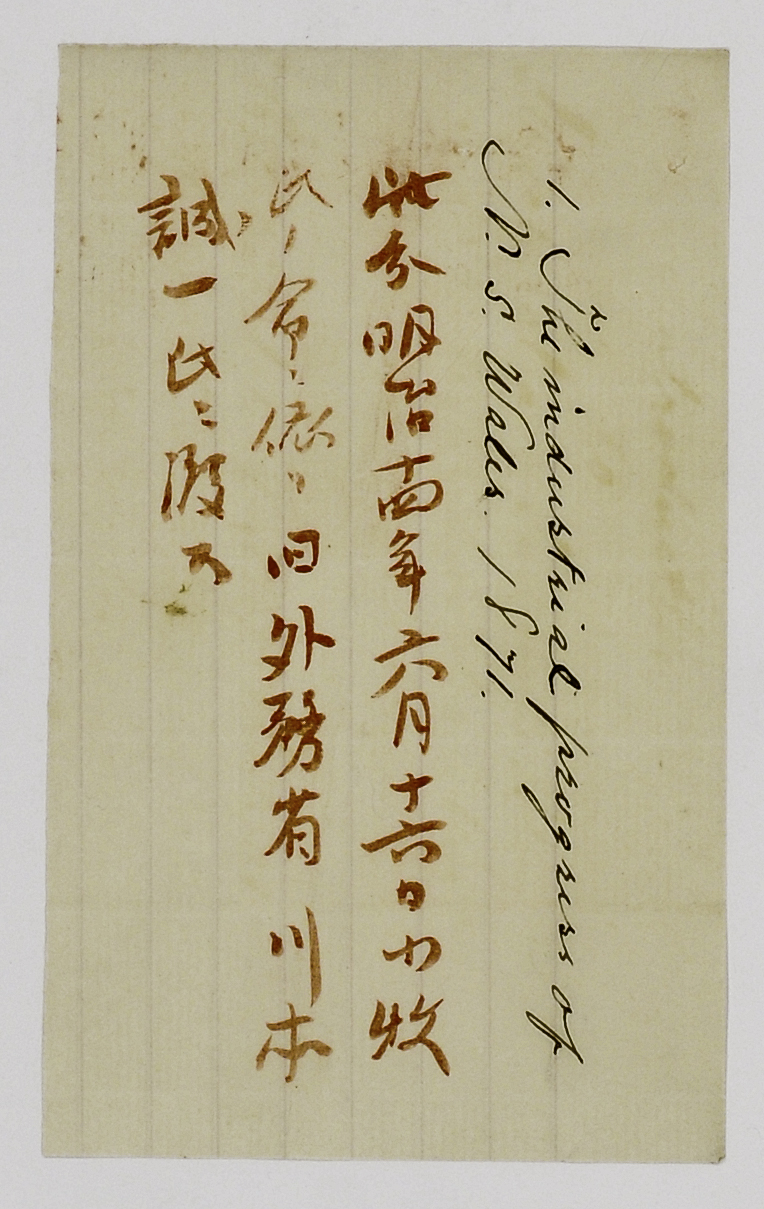 1. The industrial progress of
N. S. Wales. 1871.
此分明治十四年六月十六日小牧
氏ノ命ニ依リ旧外務省川本
誠一氏ニ渡ス